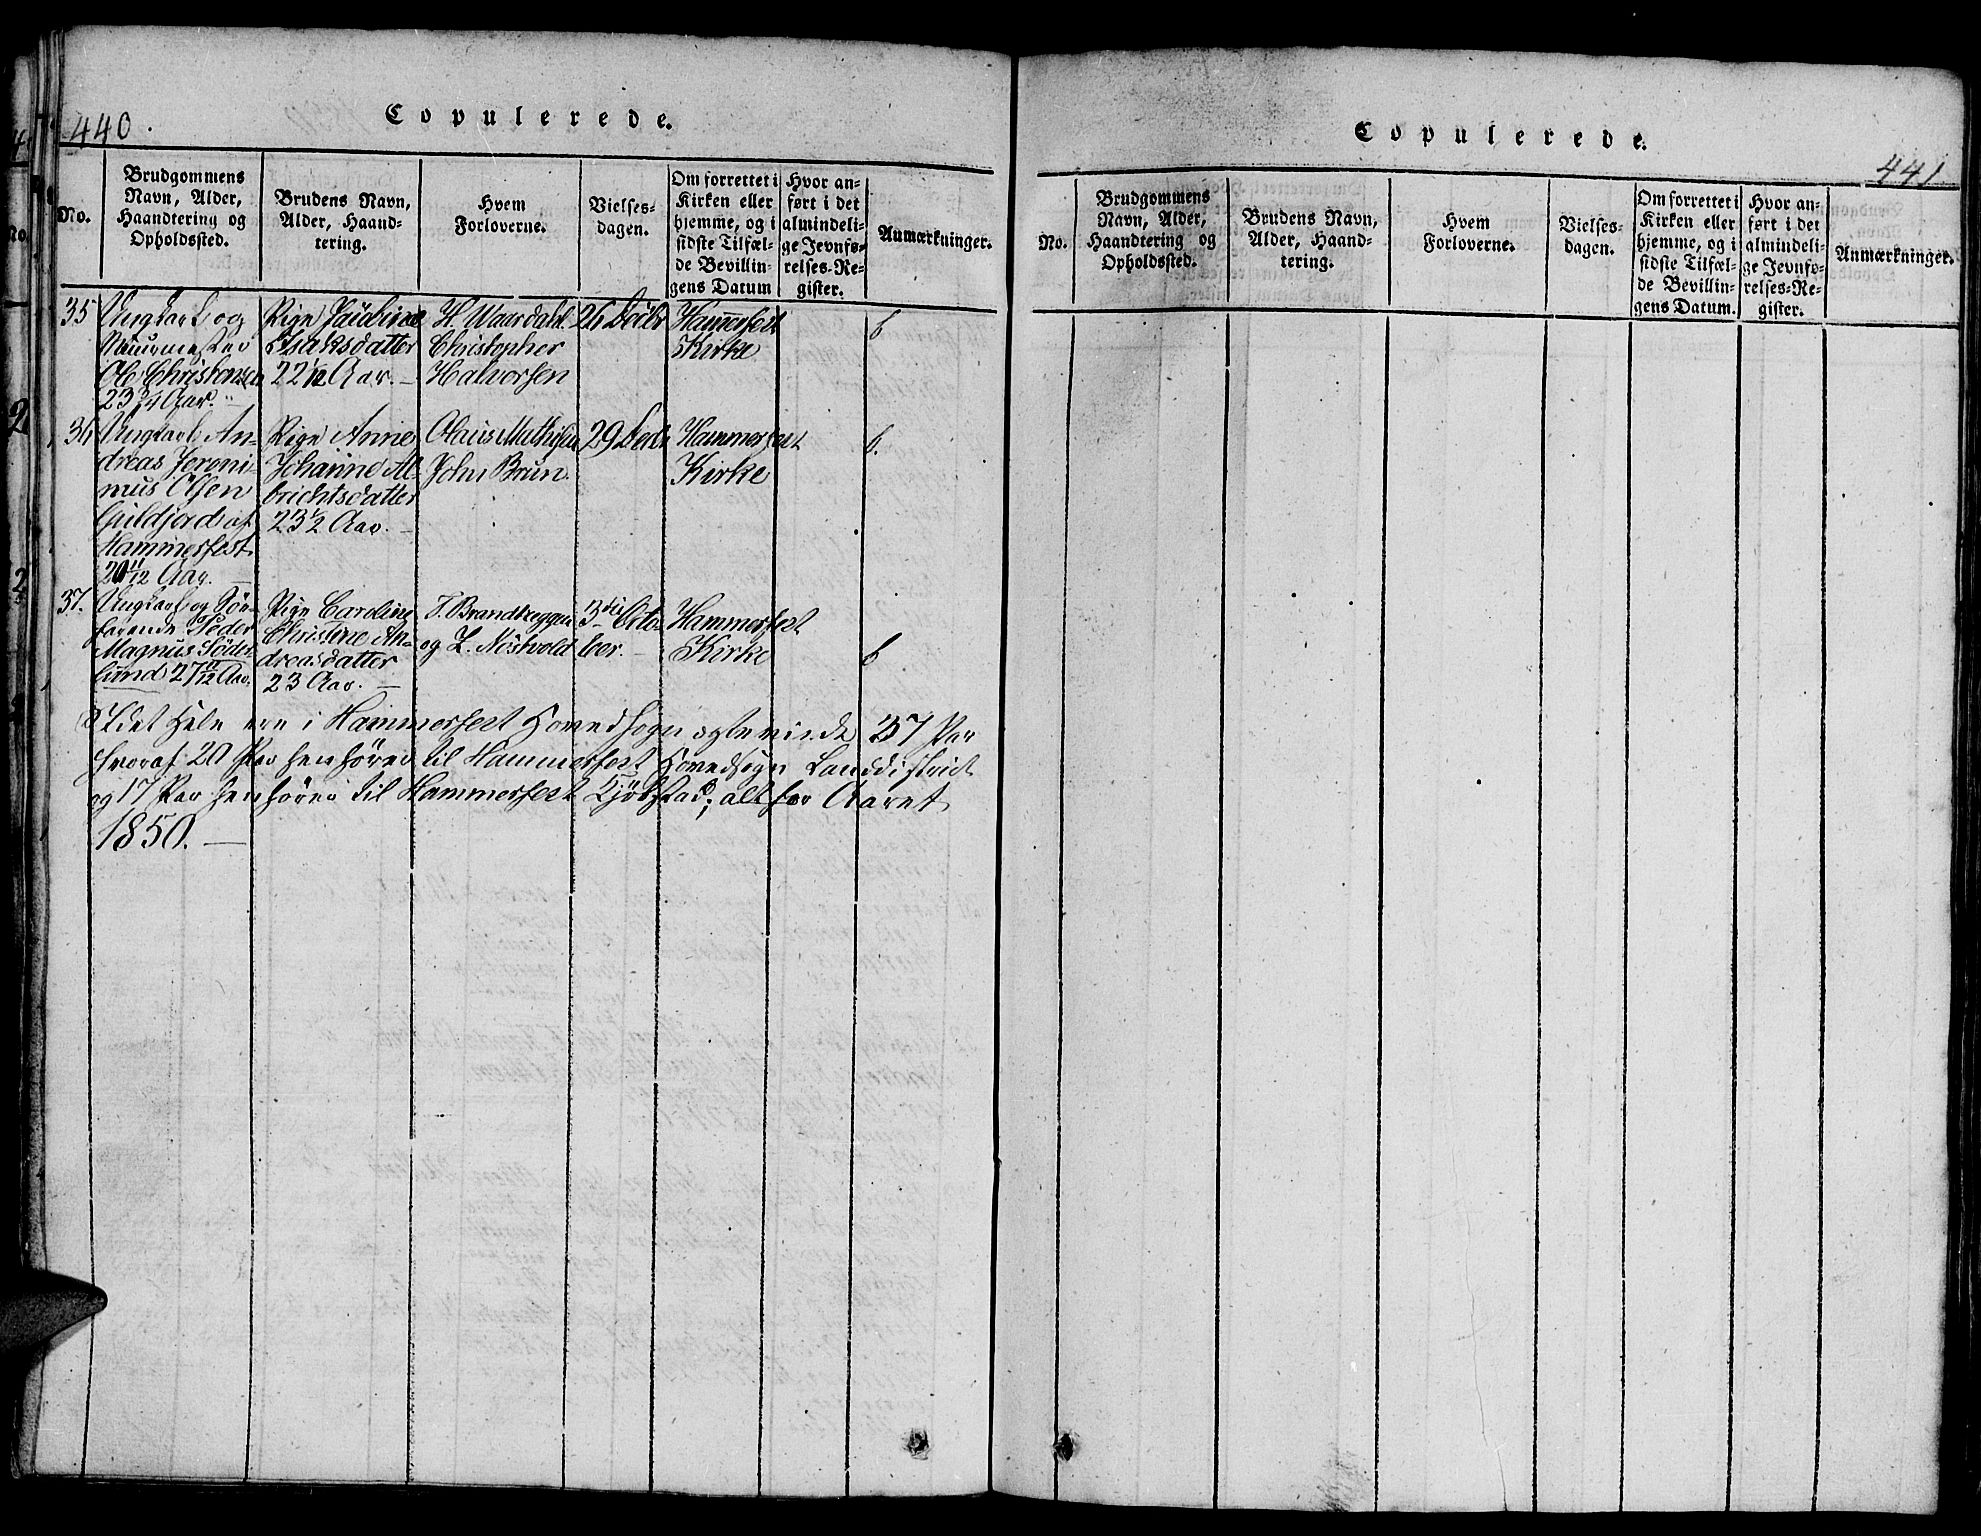 440.
Copulerede.
No.
Brudgommens
Navn, Alder,
Haandtering og
Opholdssted.
Brudens Navn,
Alder, Haand-
tering.
Hvem
Forloverne.
Vielses-
dagen.
Om forrettet i
Kirken eller
hjemme, og i
sidste Tilfæl-
de Bevillin-
gens Datum
Hvor an-
ført i det
almindeli-
ge Jevnfø-
relses-Re-
gister.
Anmærkninger.
35
Ungkarl og
Muurmester
Ole Christensen
23 3/4 Aar.
Pige Pauline
Isaksdatter
22 1/2 Aar. –
H. Waardahl
Christopher
Halvorsen
26 Decbr
Hammerfest
Kirke
6
36
Ungkarl An-
dreas Jeroni-
mus Olsen
Guldjord af
Hammerfest
20 11/12 Aar. –
Pige Anne
Johanne Al-
brichtsdatter
23 1/2 Aar. –
Olaus Mathisen
John Brun.
29 Decbr
Hammerfest
Kirke
6.
37.
Ungkarl og Søe-
farende Peder
Magnus Söder-
lund 27 11/12 Aar.
Pige Caroline
Christine An-
dreasdatter
23 Aar. –
T. Brandtzeggen
og L. Nöstvold
3die Octo-
ber. –
Hammerfest
Kirke
6
I det Hele ere i Hammerfest Hovedsogn ægteviede 37 Par
hvoraf 20 Par henhörer til Hammerfest Hovedsogn Landdistrict
og 17 Par henhörer til Hammerfest Kjöbstad; alt for Aaret
1850. –
Copulerede.
441
No.
Brudgommens
Navn, Alder,
Haandtering og
Opholdssted.
Brudens Navn,
Alder, Haand-
tering.
Hvem
Forloverne.
Vielses-
dagen.
Om forrettet i
Kirken eller
hjemme, og i
sidste Tilfæl-
de Bevillin-
gens Datum.
Hvor an-
ført i det
almindeli-
ge Jevnfø-
relses-Re-
gister.
Anmærkninger.